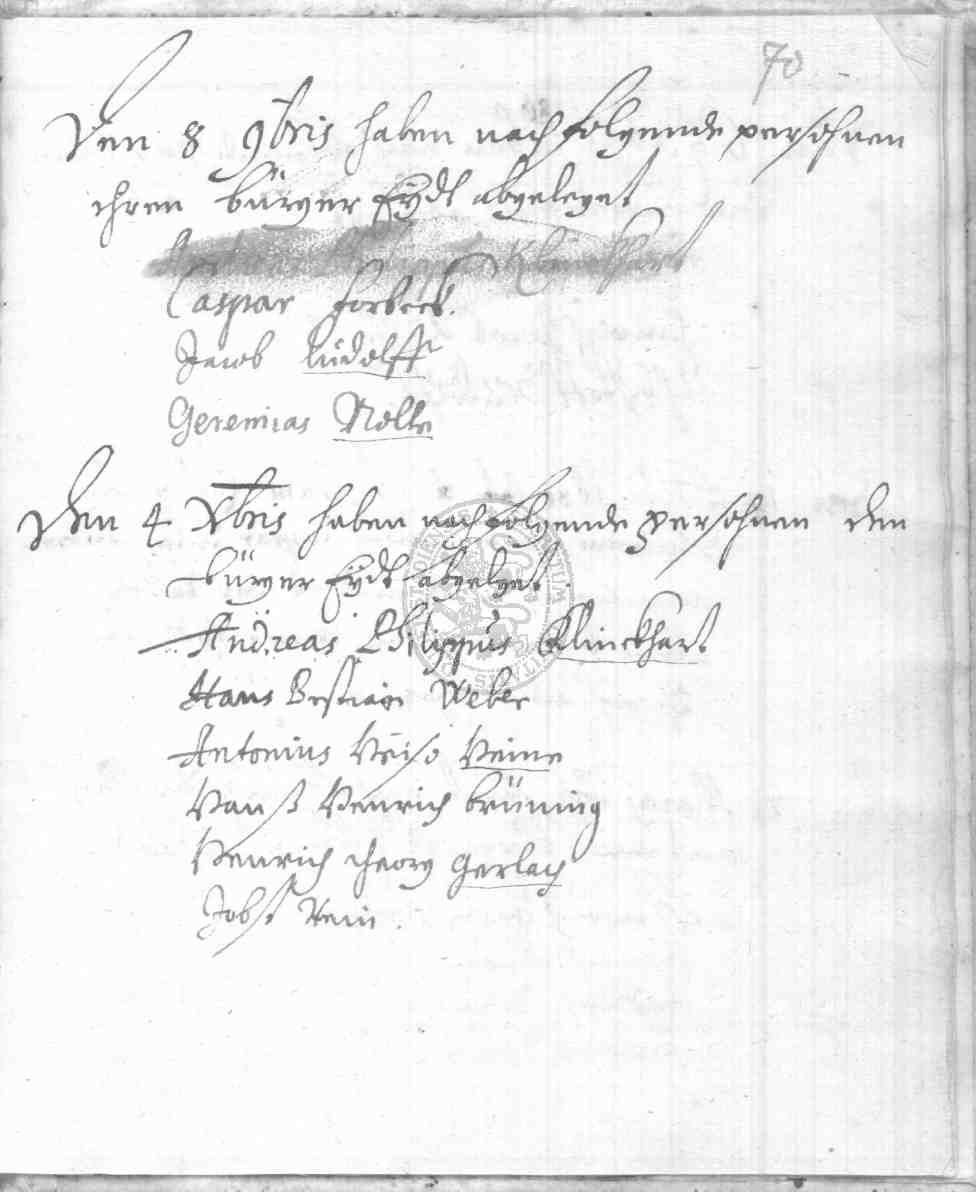 70
Den 8 9bris haben nachfolgende persohnen
ihren bürger Eydt abgeleget
Klinckhart
Caspar Forbeck.
Jacob Ludolff
Geremias Nolte
Den 4 Xbris haben nachfolgende persohnen den
bürger Eydt abgeleget.
Andreas Philippus Klinckhart
Hans Bestian Weber
Antonius Heine
Hanß Henrich brüning
Henrich Gerlach
Jobst Hein.